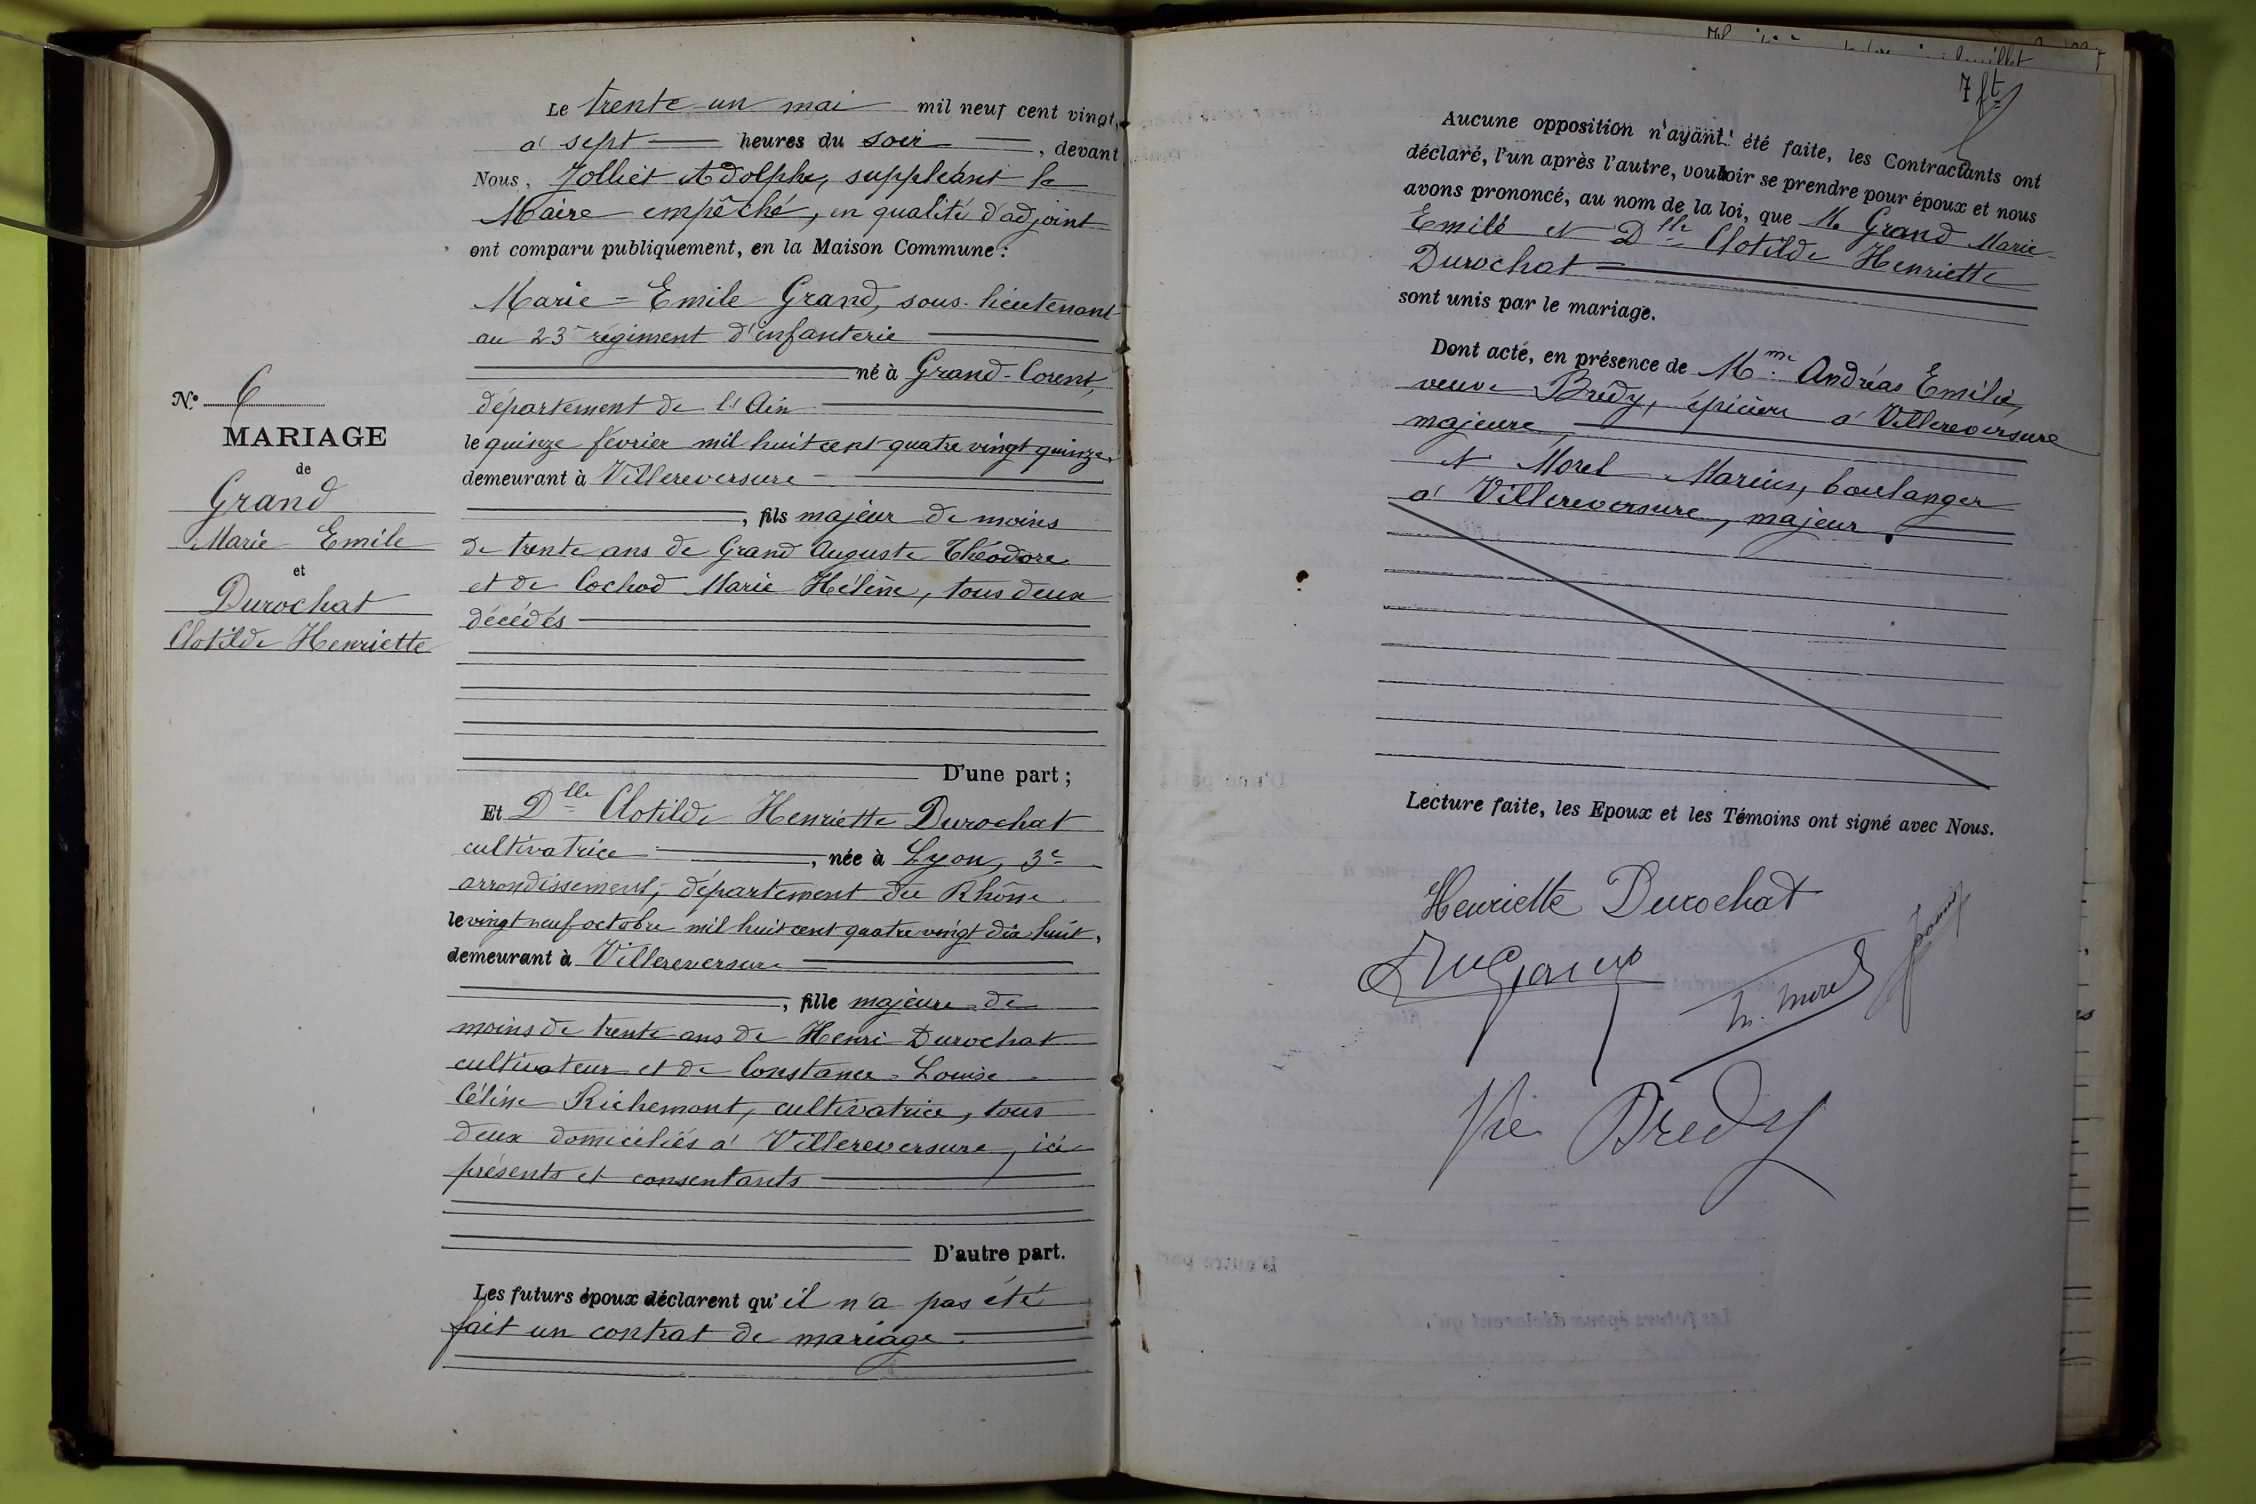 Le trente-un mai mil neuf cent vingt,
à sept heures du soir, devant
Nous, Jolliet Adolphe, suppléant le
Maire empêché, en qualité d'adjoint
ont comparu publiquement, en la Maison Commune :
Marie-Emile Grand, sous-lieutenant
au 23e régiment d'infanterie
né à Grand-Corent,
département de l'Ain
le quinze février mil huit cent quatre vingt quinze,
demeurant à Villereversure
, fils majeur de moins
de trente ans de Grand Auguste Théodore
et de Cochod Marie Hélène, tous deux
décédés
D'une part ;
N° 6
MARIAGE
de
Grand
Marie Emile
et
Durochat
Clotilde Henriette
Et Dlle Clotilde Henriette Durochat
cultivatrice, née à Lyon, 3e
arrondissement, département du Rhône
le vingt neuf octobre mil huit cent quatre vingt dix huit,
demeurant à Villereversure
, fille majeure de
moins de trente ans de Henri Durochat
cultivateur et de Constance-Louise-
Céline Richemont, cultivatrice, tous
deux domiciliés à Villereversure, ici
présents et consentants
D'autre part.
Les futurs époux déclarent qu'il n'a pas été
fait un contrat de mariage
7 ft
Aucune opposition n'ayant été faite, les Contractants ont
déclaré, l'un après l'autre, vouloir se prendre pour époux et nous
avons prononcé, au nom de la loi, que M. Grand Marie-
Emile et Dlle Clotilde Henriette
Durochat
sont unis par le mariage.
Dont acte, en présence de Mme Andréas Emilie,
veuve Brédy, épicière à Villereversure
majeure
et Morel Marius, boulanger
à Villereversure, majeur.
Lecture faite, les Epoux et les Témoins ont signé avec Nous.
Henriette Durochat
M. Morel
Vve Bredy